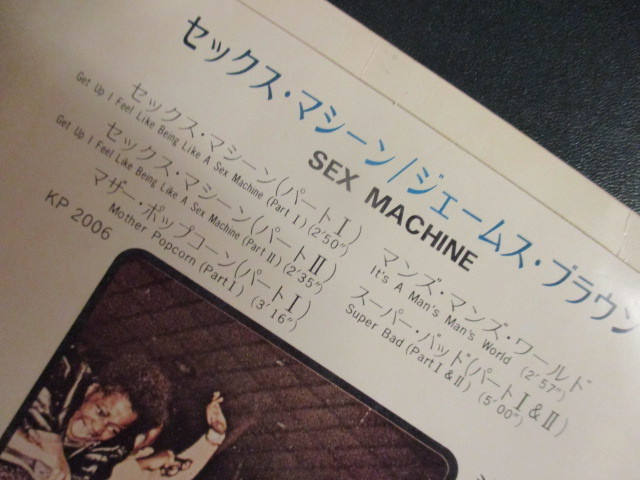 セックス・マシーン/ジェームス・ブラウン
SEX MACHINE
セックス・マシーン(パートⅠ)
Get Up I Feel Like Being Like A Sex Machine (Part I) (2′50″)
セックス・マシーン(パートⅡ)
Get Up I Feel Like Being Like A Sex Machine (Part II) (2′35″)
マザー・ポップコーン(パートⅠ)
Mother Popcorn (Part I) (3′16″)
マンズ・マンズ・ワールド
It's A Man's Man's World (2′57″)
スーパー・バッド(パートⅠ&Ⅱ)
Super Bad (Part I & II) (5′00″)
KP 2006